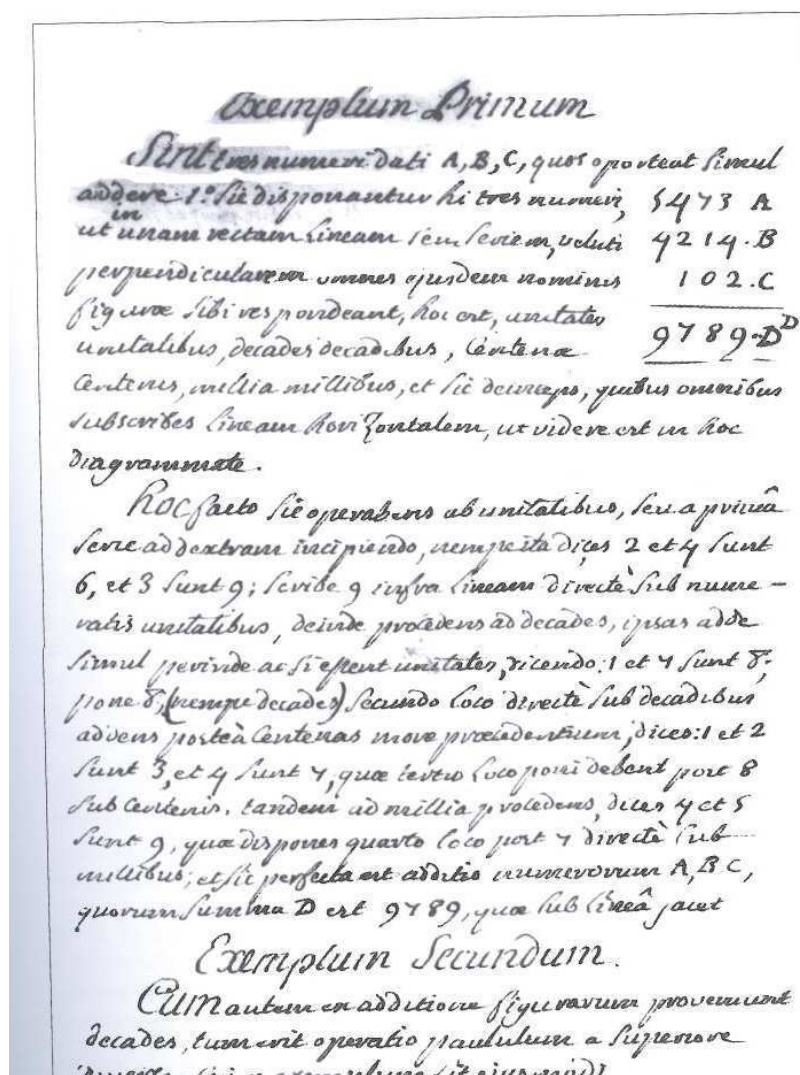 Exemplum Primum
Sint tres numeri dati A, B, C, quos oporteat simul
addere: 1.º Sic disponantur hi tres numeri, 5473 A
in
ut unam rectam Lineam seu Seriem, veluti 4214. B
perpendicularem omnes ejusdem nominis 102. C
figuræ sibi respondeant, hoc est, unitates
unitatibus, decades decadibus, Centenæ 9789. D D
Centenis, millia millibus, et sic deinceps, quibus omnibus
subscribes Lineam horizontalem, ut videre est in hoc
diagrammate.
Hoc facto sic operaberis ab unitatibus, seu a primâ
serie ad dextram incipiendo, nempe ita dices 2 et 4 sunt
6, et 3 sunt 9; scribe 9 infra Lineam directè sub nume-
ratis unitatibus, deinde procedens ad decades, ipsas adde
simul perinde ac si essent unitates, dicendo: 1 et 7 sunt 8;
pone 8, (nempe decades) secundo loco directè sub decadibus
advens posteà Centenas more præcedentium, dices: 1 et 2
sunt 3, et 4 sunt 7, quæ tertio loco poni debent post 8
sub Centenis. tandem ad millia procedens, dices 4 et 5
sunt 9, quæ dispones quarto loco post 7 directè sub
millibus; et sic perfecta est additio numerorum A, B C,
quorum summa D est 9789, quæ sub lineâ jacet
Exemplum Secundum.
Cum autem ex additione figurarum proveniunt
decades, tum erit operatio paululum a superiore